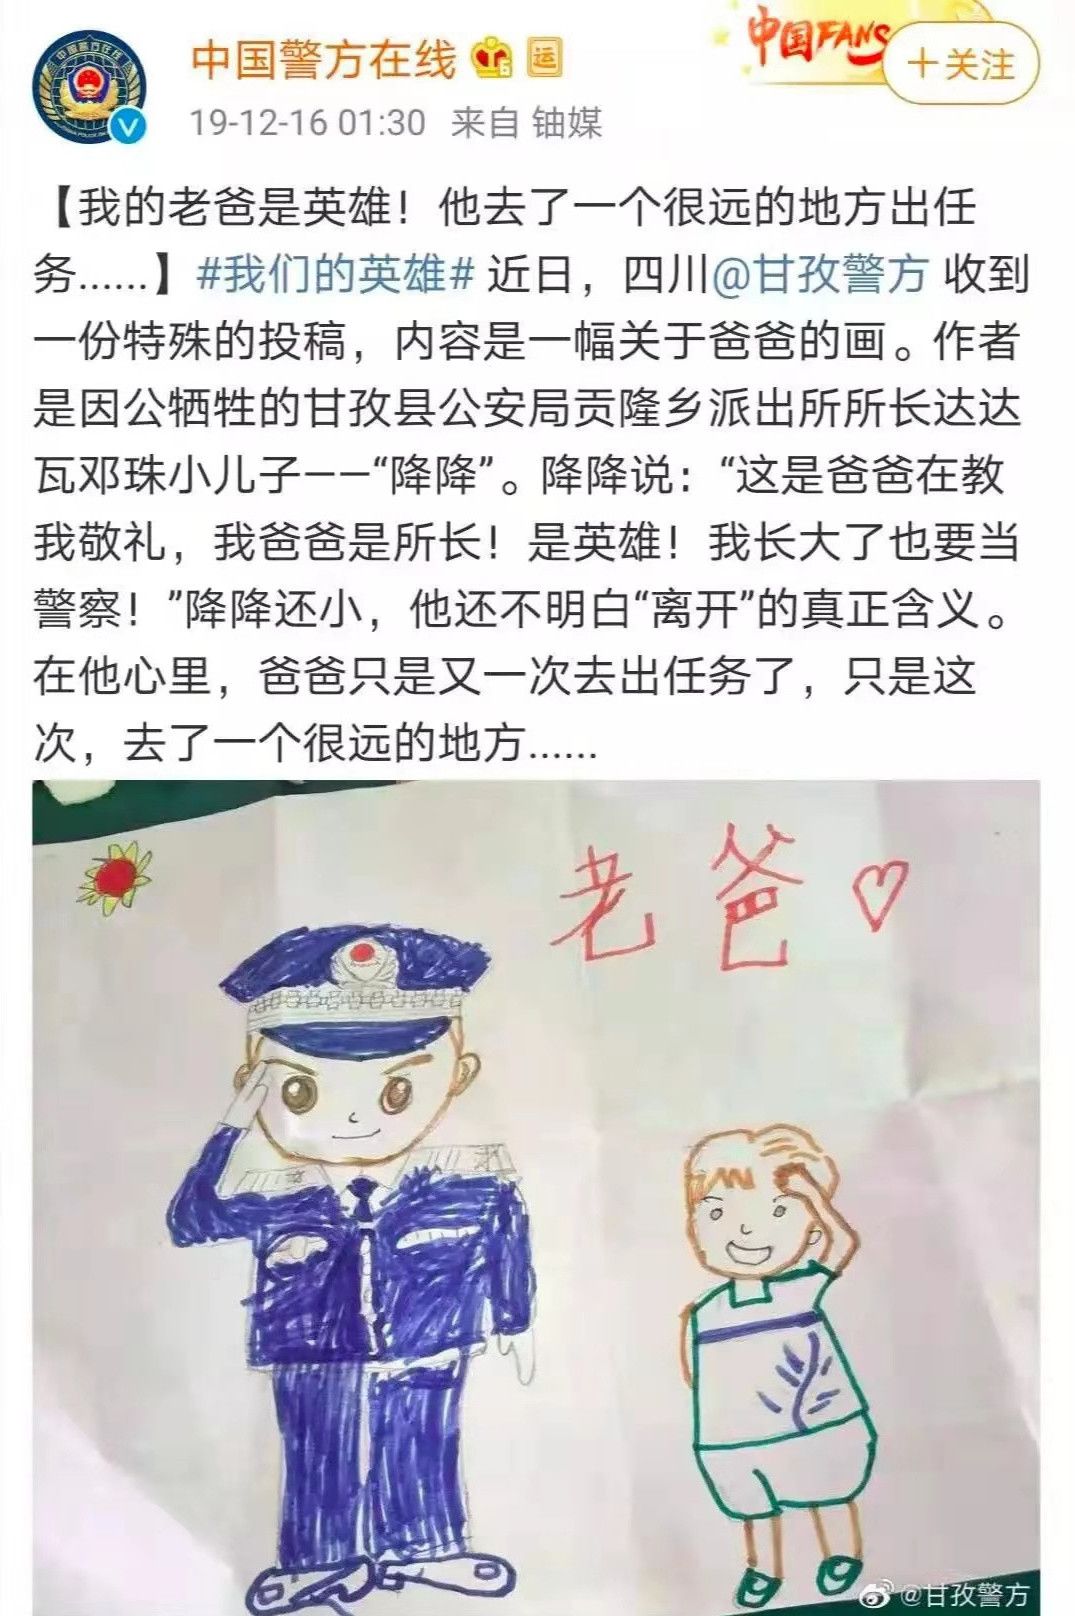 中国警方在线
运
中国FANS
+关注
19-12-16 01:30 来自 铀媒
【我的老爸是英雄！他去了一个很远的地方出任
务......】#我们的英雄# 近日，四川@甘孜警方 收到
一份特殊的投稿，内容是一幅关于爸爸的画。作者
是因公牺牲的甘孜县公安局贡隆乡派出所所长达达
瓦邓珠小儿子——“降降”。降降说：“这是爸爸在教
我敬礼，我爸爸是所长！是英雄！我长大了也要当
警察！”降降还小，他还不明白“离开”的真正含义。
在他心里，爸爸只是又一次去出任务了，只是这
次，去了一个很远的地方......
老爸
@甘孜警方